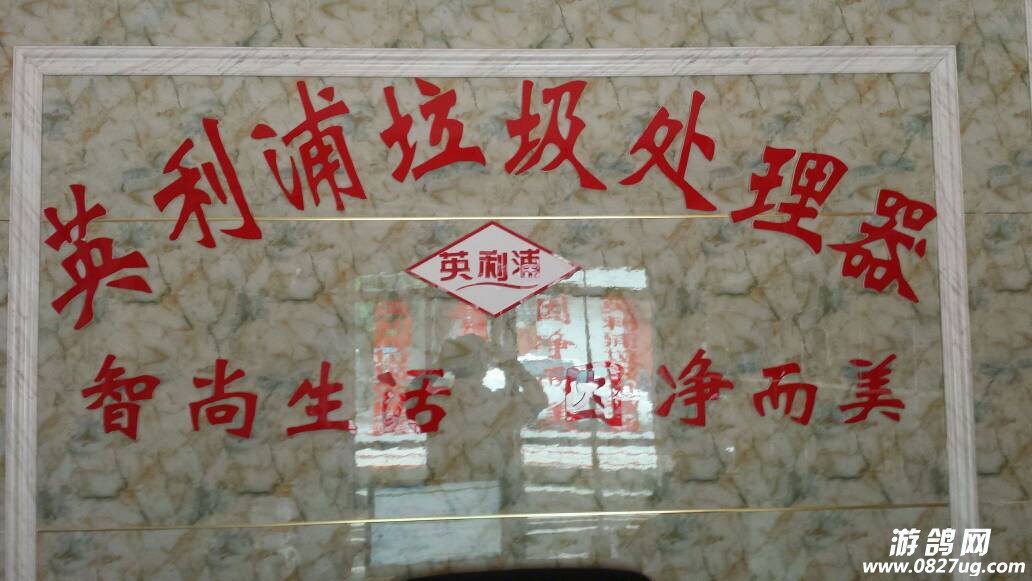 英利浦垃圾处理器
英利浦
智尚生活 因净而美
游鸽网
www.0827ug.com